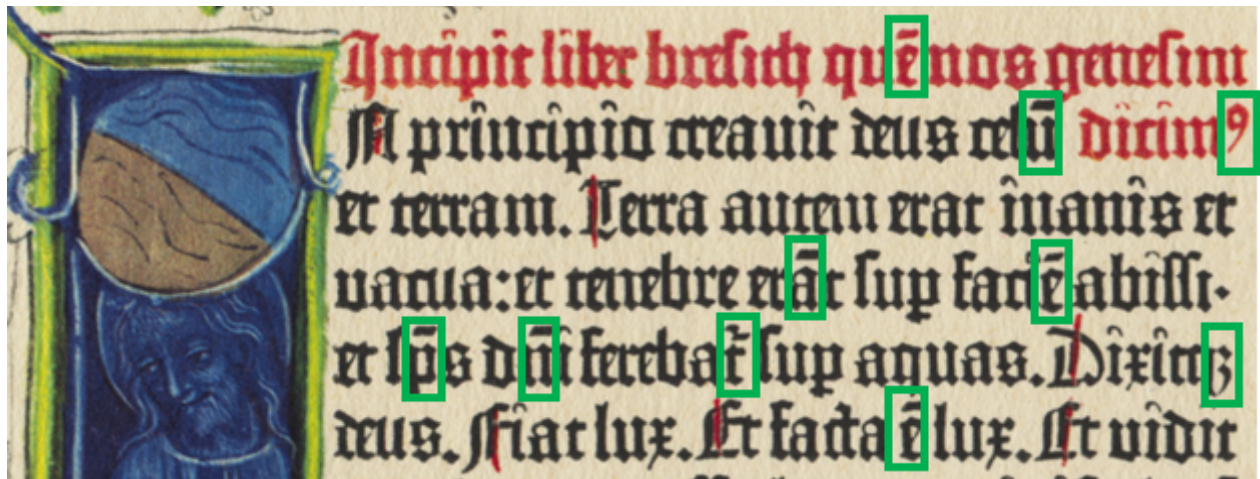 Incipit liber bresith quē nos genesim
N principio creauit deus celū dicimꝰ
et terram. Terra autem erat inanis et
uacua: et tenebre erāt suꝑ faciē abissi.
et sp̄s dn̄i ferebat᷑ suꝑ aquas. Dixitqꝫ
deus. Fiat lux. Et facta ē lux. Et uidit